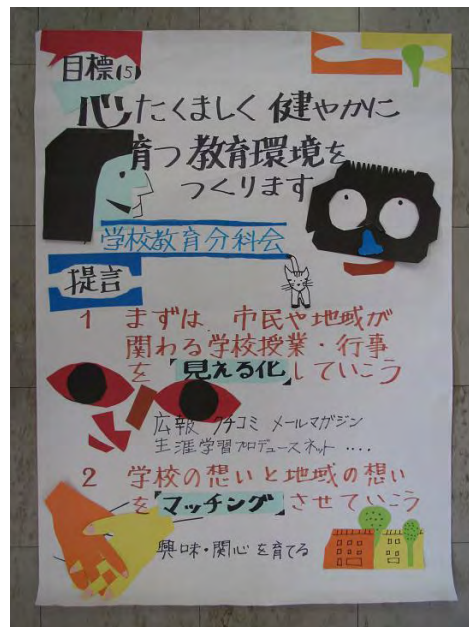 目標(5)
心たくましく 健やかに
育つ 教育環境を
つくります
学校教育分科会
提言
1 まずは、市民や地域が
関わる学校授業・行事
を「見える化」していこう
広報 クチコミ メールマガジン
生涯学習プロデュースネット ....
2 学校の想いと地域の想い
を「マッチング」させていこう
興味・関心を育てる